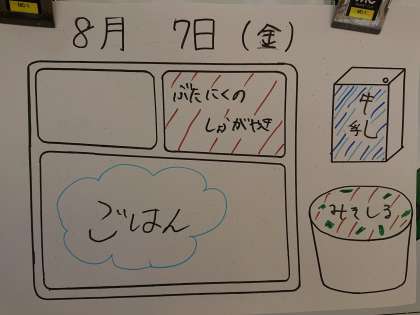 8月 7日(金)
ぶたにくの
しょうがやき
牛
乳
ごはん
みそしる